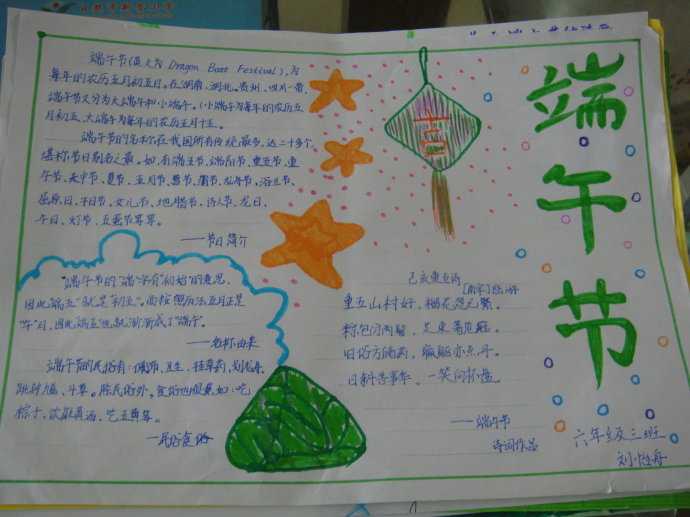 端午节
端午节(英文为Dragon Boat Festival),为
每年的农历五月初五日。在湖南、湖北、贵州、四川一带,
端午节又分为大端午和小端午。小端午为每年的农历五
月初五,大端午为每年的农历五月十五。
端午节的名称在我国所有传统最多,达二十多个
堪称节日别名之最。如,有端五节、端阳节、重五节、重
午节、天中节、夏节、五月节、
屈原日、午日节、女儿节、地腊节、诗人节、龙日、
午日、灯节、五蛋节等等。
——节日简介
"端午节的"端"字有"初始"的意思,
因此"端五"就是"初五"。而按照历法五月正是
"午"月,因此"端五"也就渐渐成了"端午"。
——名称由来
端午节的民俗有:
跳钟馗、斗草。除民俗外,食俗也很重如:吃
粽子、饮雄黄酒、吃五毒
——民俗食俗
己亥重五诗
[南宋]
重五山村好,榴花忽已繁。
粽包分两髻,艾束著危冠。
旧俗方储药,羸躯亦点丹。
日斜吾事毕,一笑向杯盘。
——端午节
诗词作品
六年级三班